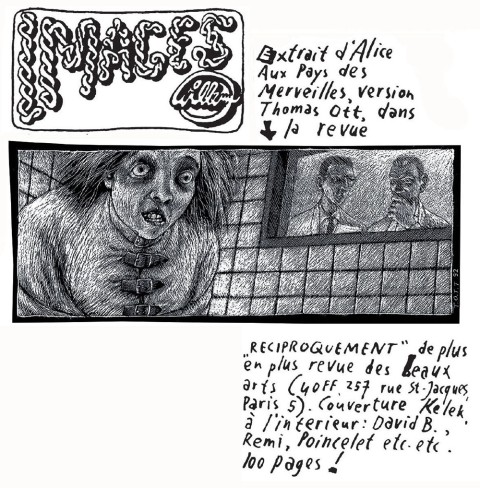 IMAGES
Willem
Extrait d'Alice
Aux Pays des
Merveilles, version
Thomas Ott, dans
la revue
T.OTT 92
„RECIPROQUEMENT" de plus
en plus revue des Beaux
arts (40FF. 257 rue St-Jacques,
Paris 5). Couverture Kelek
à l'interieur: David B.,
Remi, Poincelet etc. etc.
100 pages!